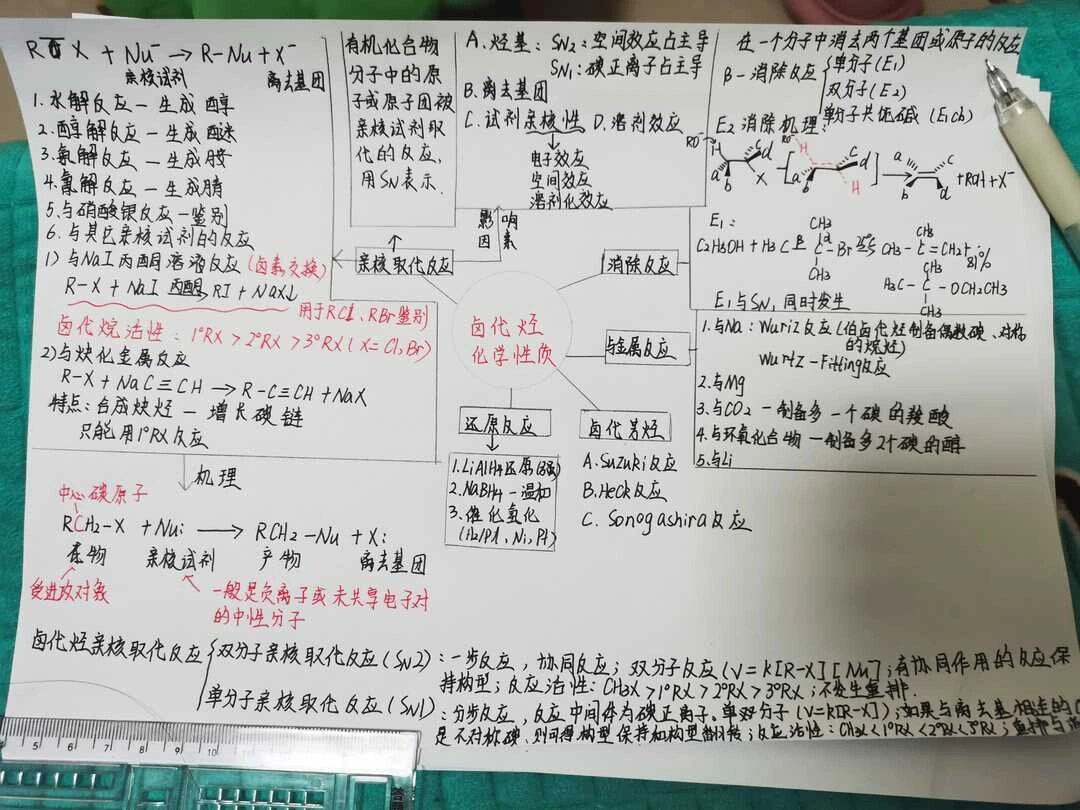 R X + Nu⁻ → R-Nu + X⁻
亲核试剂 离去基团
1.水解反应 — 生成醇
2.醇解反应 — 生成醚
3.氨解反应 — 生成胺
4.氰解反应 — 生成腈
5.与硝酸银反应 — 鉴别
6.与其它亲核试剂的反应
1) 与NaI丙酮溶液反应 (卤素交换)
R-X + NaI 丙酮→ RI + NaX↓
用于RCl、RBr鉴别
卤代烷活性：1°RX > 2°RX > 3°RX (X=Cl,Br)
2) 与炔化金属反应
R-X + NaC≡CH → R-C≡CH + NaX
特点：合成炔烃 — 增长碳链
只能用1°RX反应
机理
中心碳原子
RCH2-X + Nu: → RCH2-Nu + X:
底物 亲核试剂 产物 离去基团
受进攻对象
一般是负离子或未共享电子对
的中性分子
有机化合物
分子中的原
子或原子团被
亲核试剂取
代的反应,
用SN表示.
亲核取代反应
影响
因素
A.烃基：SN2：空间效应占主导
SN1：碳正离子占主导
B.离去基团
C.试剂亲核性 D.溶剂效应
电子效应
空间效应
溶剂化效应
在一个分子中消去两个基团或原子的反应
β-消除反应
单分子(E1)
双分子(E2)
单分子共轭碱(E1cb)
E2消除机理：
RO⁻ H a b c d X
RO H a b c d H
a b c d + ROH + X⁻
E1：
CH3
C2H5OH + H3C C Br 25℃ CH3-C=CH2
CH3
CH3
81%
CH3
H3C-C-OCH2CH3
CH3
E1与SN1同时发生
消除反应
卤代烃
化学性质
与金属反应
1.与Na：Wuriz反应(伯卤代烃制备偶数碳、对称
的烷烃)
Wurtz-Fitting反应
2.与Mg
3.与CO2 — 制备多一个碳的羧酸
4.与环氧化合物 — 制备多2个碳的醇
5.与Li
还原反应
1.LiAlH4还原(强)
2.NaBH4 — 温和
3.催化氢化
(H2/Pd、Ni、Pt)
卤代芳烃
A.Suzuki反应
B.Heck反应
C.Sonogashira反应
卤代烃亲核取代反应
双分子亲核取代反应(SN2)：一步反应，协同反应；双分子反应(V=k[R-X][Nu]；有协同作用的反应保
持构型；反应活性：CH3X > 1°RX > 2°RX > 3°RX；不发生重排.
单分子亲核取代反应(SN1)：分步反应，反应中间体为碳正离子。单分子(V=k[R-X])；如果与离去基相连的C
是不对称碳,则可得构型保持和构型翻转；反应活性：CH3X < 1°RX < 2°RX < 3°RX；重排与
5 6 7 8 9 10